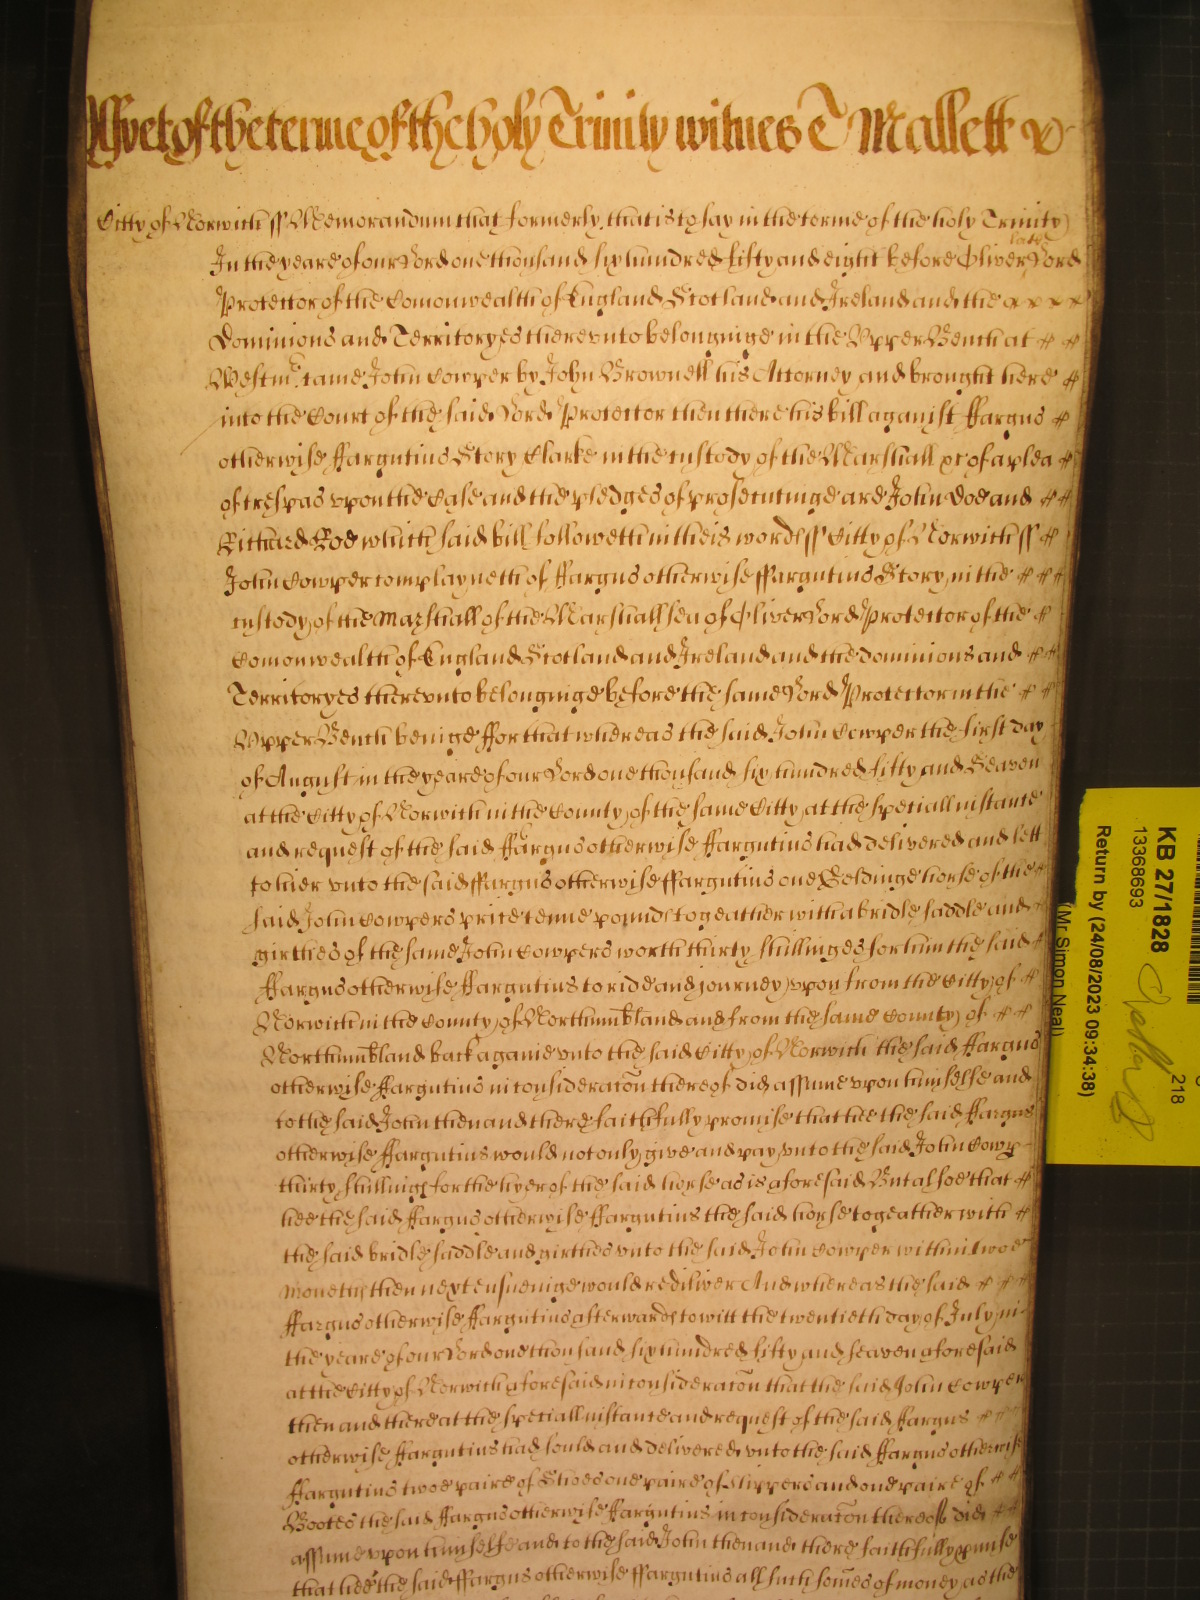 As yet of the terme of the holy Trinity witnes T Mallett
Citty of Norwich ss Memorandum that formerly that is to say in the terme of the holy Trinity
late
In the yeare of our Lord one thousand six hundred fifty and eight before Oliver Lord
Protector of the Comonwealth of England Scotland and Ireland and the
Dominions and Territoryes therevnto belonginge in the Vpper Bench at
Westmr. came John Cowper by John Brownell his Attorney and brought here
into the Court of the said Lord Protector then there his bill against ffargus
otherwise ffargutius Story Clarke in the custody of the Marshall &c of a plea
of trespas vpon the Case and the pledges of prosecutinge are John Doe and
Richard Roe which said bill followeth in theis wordes ss Citty of Norwich ss
John Cowper complayneth of ffargus otherwise ffargutius Story in the
custody of the Marshall of the Marshallsea of Oliver Lord Protector of the
Comonwealth of England Scotland and Ireland and the dominions and
Territoryes therevnto belonginge before the same Lord Protector in the
Vpper Bench beinge ffor that whereas the said John Cowper the first day
of August in the yeare of our Lord one thousand six hundred fifty and Seaven
at the Citty of Norwich in the County of the same Citty at the speciall instance
and request of the said ffargus otherwise ffargutius had delivered and lett
to hier vnto the said ffargus otherwise ffargutius one Geldinge horse of the
said John Cowpers price tenne pounds togeather with a bridle saddle and
girthes of the same John Cowpers worth thirty shillinges for him the said
ffargus otherwise ffargutius to ride and journey vpon from the Citty of
Norwich in the County of Northumbland and from the same County of
Northumbland back againe vnto the said Citty of Norwich the said ffargus
otherwise ffargutius in consideracon thereof did assume vpon himselfe and
to the said John then and there faithfully promise that hee the said ffargus
otherwise ffargutius would not only give and pay vnto the said John Cowp
thirty shillings for the hyer of the said horse as is aforesaid But alsoe that
hee the said ffargus otherwise ffargutius the said horse togeather with
the said bridle saddle and girthes vnto the said John Cowper within twoe
moneths then next ensueinge would rediliver And whereas the said
ffargus otherwise ffargutius afterwards to witt the twentieth day of July in
the yeare of our Lord one thousand six hundred fifty and seaven aforesaid
at the Citty of Norwich aforesaid in consideracon that the said John Cowper
then and there at the speciall instance and request of the said ffargus
otherwise ffargutius had sould and delivered vnto the said ffargus otherwise
ffargutius twoe paire of Shoes one paire of slippers and one paire of
Bootes the said ffargus otherwise ffargutius in consideracon thereof did
assume vpon himselfe and to the said John then and there faithfully pmise
that hee the said ffargus otherwise ffargutius all such somes of money as the
KB 27/1828
13368693
218
Return by (24/08/2023 09:34:38)
(Mr Simon Neal)